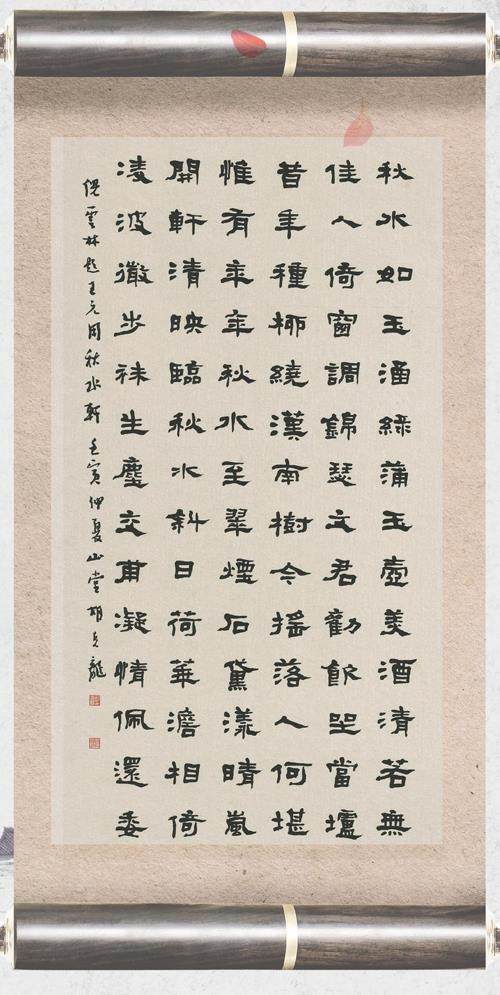 秋水如玉涵綠蒲玉壺美酒清若無
佳人倚窗調錦瑟文君勸飲坐當壚
昔年種柳繞漢南樹今搖落人何堪
惟有年年秋水至翠煙石黛漾晴嵐
開軒清映臨秋水斜日荷華澹相倚
凌波微步袜生塵交甫凝情佩還委
倪雲林題王元用秋水軒 壬寅仲夏山堂胡兵龍